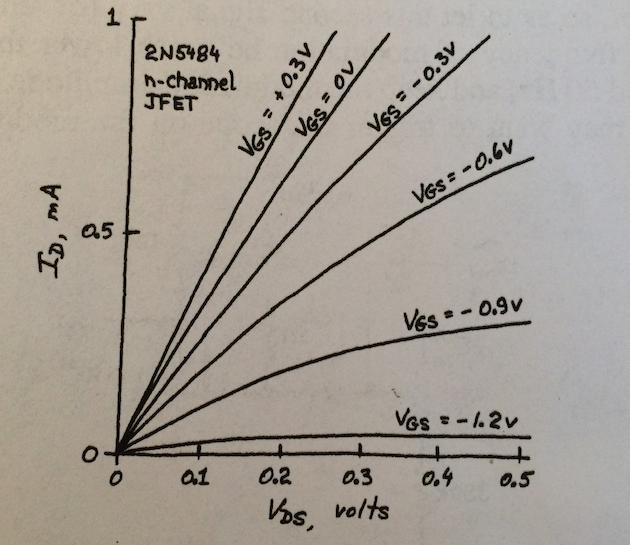 1
2N5484
n-channel
JFET
VGS = +0.3V
VGS = 0V
VGS = -0.3V
VGS = -0.6V
0.5
ID, mA
VGS = -0.9V
VGS = -1.2V
0
0 0.1 0.2 0.3 0.4 0.5
VDS, volts